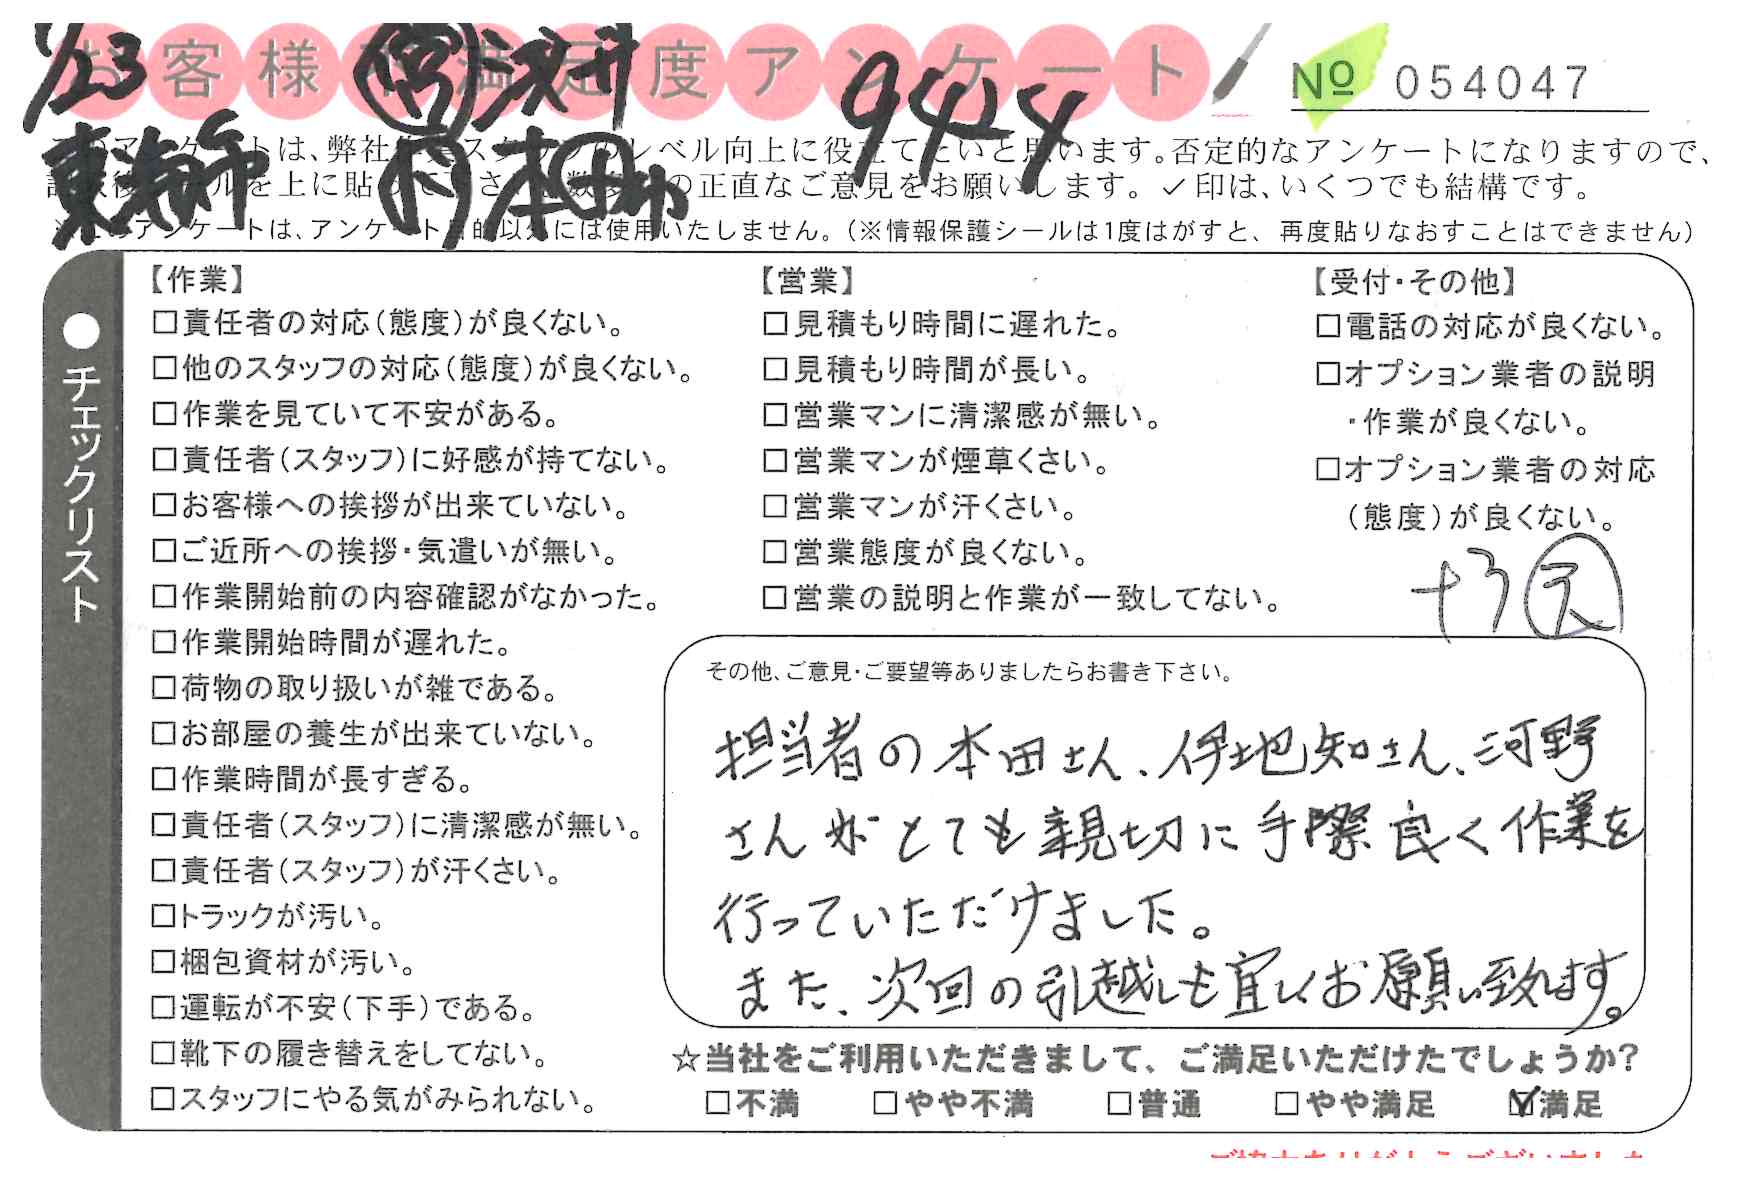 お客様不満足度アンケート
1/23
浅井
944
№ 054047
東海市
本田
このアンケートは、弊社作業スタッフのレベル向上に役立てたいと思います。否定的なアンケートになりますので、
を上に貼って下さい。の正直なご意見をお願いします。✓印は、いくつでも結構です。
※このアンケートは、アンケート目的以外には使用いたしません。(※情報保護シールは1度はがすと、再度貼りなおすことはできません)
●チェックリスト
【作業】
□責任者の対応(態度)が良くない。
□他のスタッフの対応(態度)が良くない。
□作業を見ていて不安がある。
□責任者(スタッフ)に好感が持てない。
□お客様への挨拶が出来ていない。
□ご近所への挨拶・気遣いが無い。
□作業開始前の内容確認がなかった。
□作業開始時間が遅れた。
□荷物の取り扱いが雑である。
□お部屋の養生が出来ていない。
□作業時間が長すぎる。
□責任者(スタッフ)に清潔感が無い。
□責任者(スタッフ)が汗くさい。
□トラックが汚い。
□梱包資材が汚い。
□運転が不安(下手)である。
□靴下の履き替えをしてない。
□スタッフにやる気がみられない。
【営業】
□見積もり時間に遅れた。
□見積もり時間が長い。
□営業マンに清潔感が無い。
□営業マンが煙草くさい。
□営業マンが汗くさい。
□営業態度が良くない。
□営業の説明と作業が一致してない。
【受付・その他】
□電話の対応が良くない。
□オプション業者の説明
・作業が良くない。
□オプション業者の対応
(態度)が良くない。
+3
その他、ご意見・ご要望等ありましたらお書き下さい。
担当者の本田さん、伊地知さん、河野
さんがとても親切に手際良く作業を
行っていただけました。
また、次回の引越しも宜しくお願い致します。
☆当社をご利用いただきまして、ご満足いただけたでしょうか?
□不満 □やや不満 □普通 □やや満足 ☑満足
ご協力ありがとうございました